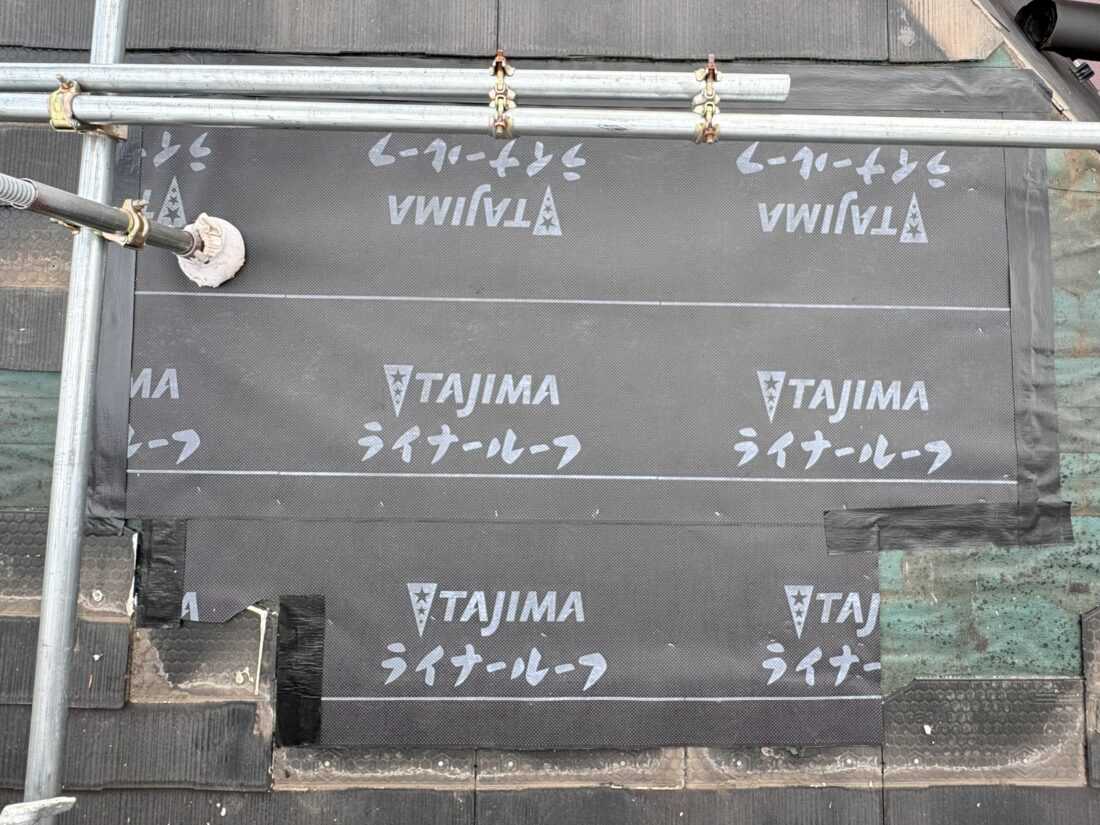 ライナールーフ
ライナールーフ
TAJIMA
TAJIMA
MA
TAJIMA
TAJIMA
ルーフ
ライナールーフ
ライナールーフ
A
TAJIMA
TAJ
ライナールーフ
ライナー